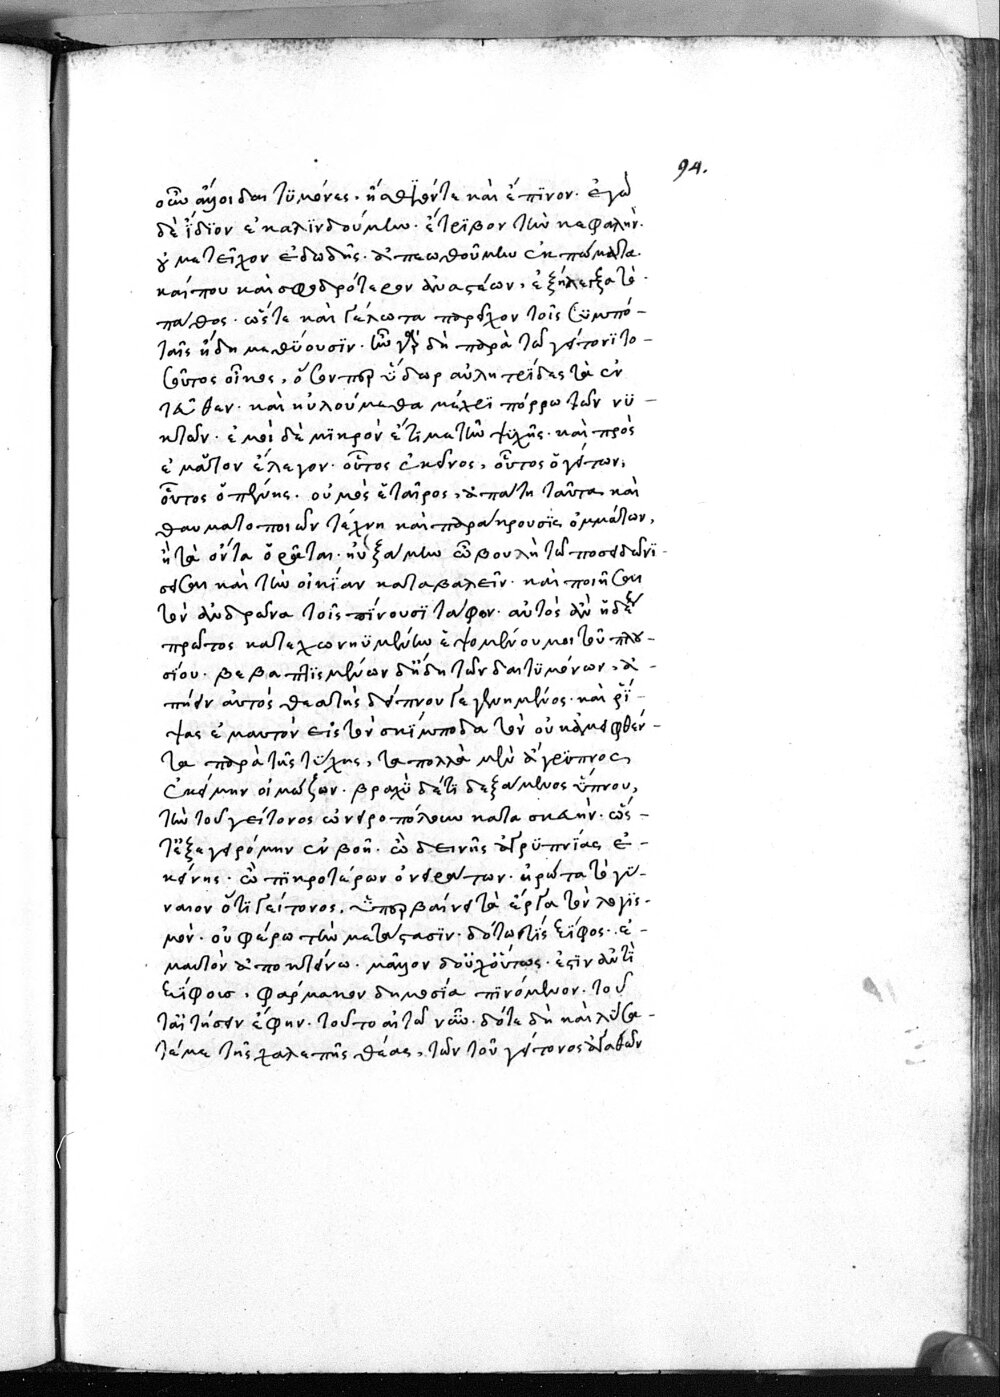 94.
οὖν ἄλλοι δαιτυμόνες. ἤσθιόν τε καὶ ἔπινον. ἐγὼ
δὲ ἴδιον ἐκαλινδούμην. ἔτριβον τὴν κεφαλήν.
οὐ μετεῖχον ἐδωδῆς. ἀπεωθούμην ἐκπώματα.
καί που καὶ σφοδρότερον ἀναστένων, ἐξήλεγξα τὸ
πάθος. ὥστε καὶ γέλωτα παρέχον τοῖς συμπό-
ταις ἤδη μεθύουσιν. ἦν γὰρ δὴ παρὰ τῷ γείτονι το-
σοῦτος οἶκος, ὅσονπερ ὕδωρ αὐλητρίδες τὰ ἐν-
ταῦθεν. καὶ ηὐλούμεθα μέχρι πόρρω τῶν νυ-
κτῶν. ἐμοὶ δὲ μικρὸν ἔτι μετῆν ψυχῆς. καὶ πρὸς
ἐμαυτὸν ἔλεγον. οὗτος ἐκεῖνος, οὗτος ὁ γείτων,
οὗτος ὁ πένης. οὑμὸς ἑταῖρος, ἀπάτη ταῦτα καὶ
θαυματοποιῶν τέχνη καὶ παράκρουσις ὀμμάτων,
ἢ τὰ ὄντα ὁρᾶται. ηὐξάμην ὦ βουλὴ τῷ ποσειδῶνι
σεῖσαι καὶ τὴν οἰκίαν καταβαλεῖν. καὶ ποιῆσαι
τὸν ἀνδρῶνα τοῖς πίνουσι τάφον. αὐτὸς ἂν ἤδειν
πρῶτος κατεχωννύμην ἑψομένου μοι τοῦ πλου-
σίου. βεβαπτισμένων δ' ἤδη τῶν δαιτυμόνων, ἀ-
πῄειν αὐτὸς θεατὴς δείπνου γεγενημένος. καὶ ῥί-
ψας ἐμαυτὸν εἰς τὸν σκίμποδα τὸν οὐ καμφθέν-
τα παρὰ τῆς τύχης, τὰ πολλὰ μὲν ἄγρυπνος
ἐκείμην οἰμώζων. βραχὺ δέ τι δεξάμενος ὕπνου,
τὴν τοῦ γείτονος ὠνειροπόλουν κατασκευήν. ὥσ-
τ' ἐξεγειρόμην ἐν βοῇ. ὢ δεινῆς ἀγρυπνίας ἐ-
κείνης. ὢ πικροτέρων ὀνειράτων. ἠρώτα τὸ γύ-
ναιον ὅτι γείτονος. ὑπερβαίνει τὰ ἔργα τὸν λογισ-
μόν. οὐ φέρω τὴν μετάστασιν. δότω τις ξίφος. ἐ-
μαυτὸν ἀποκτείνω. μᾶλλον δ' οὐχ οὕτως. ἔστιν ἀντὶ
ξίφους, φάρμακον δημοσία πινόμενον. τοῦ-
τ' αἰτήσειν ἔφην. τοῦτο αἰτῶ νῦν. δότε δὴ καὶ λύσα-
τέ με τῆς χαλεπῆς θέας, τῶν τοῦ γείτονος ἀγαθῶν